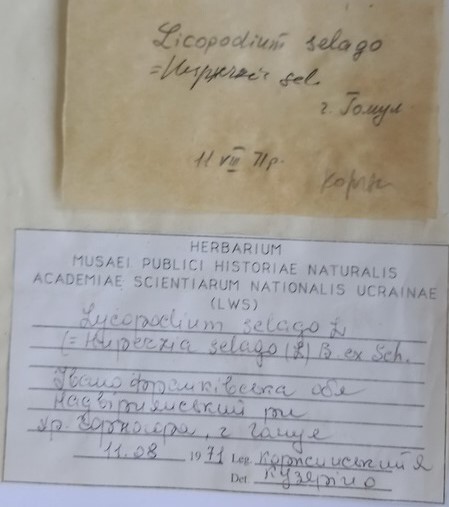 Licopodium selago
= Huperzia sel.
г. Гомул
11 VIII 71р.
HERBARIUM
MUSAEI PUBLICI HISTORIAE NATURALIS
ACADEMIAE SCIENTIARUM NATIONALIS UCRAINAE
(LWS)
Lycopodium selago L
(= Huperzia selago (L) B. ex Sch.
Івано франківська обл
Надвірнянський рн
хр. Чорногора, г Гомул
11.08 1971 Leg. Коржинський Я
Det. Кузярін О